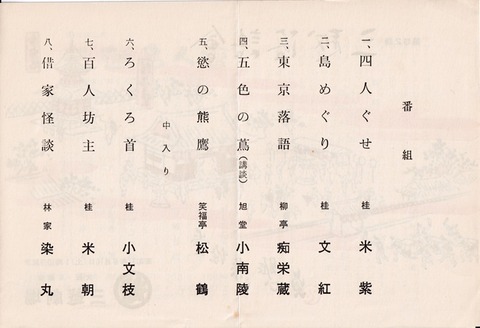 番組
一、四人ぐせ 桂 米紫
二、島めぐり 桂 文紅
三、東京落語 柳亭 痴栄蔵
四、五色の蔦(講談) 旭堂 小南陵
五、慾の熊鷹 笑福亭 松鶴
中入り
六、ろくろ首 桂 小文枝
七、百人坊主 桂 米朝
八、借家怪談 林家 染丸